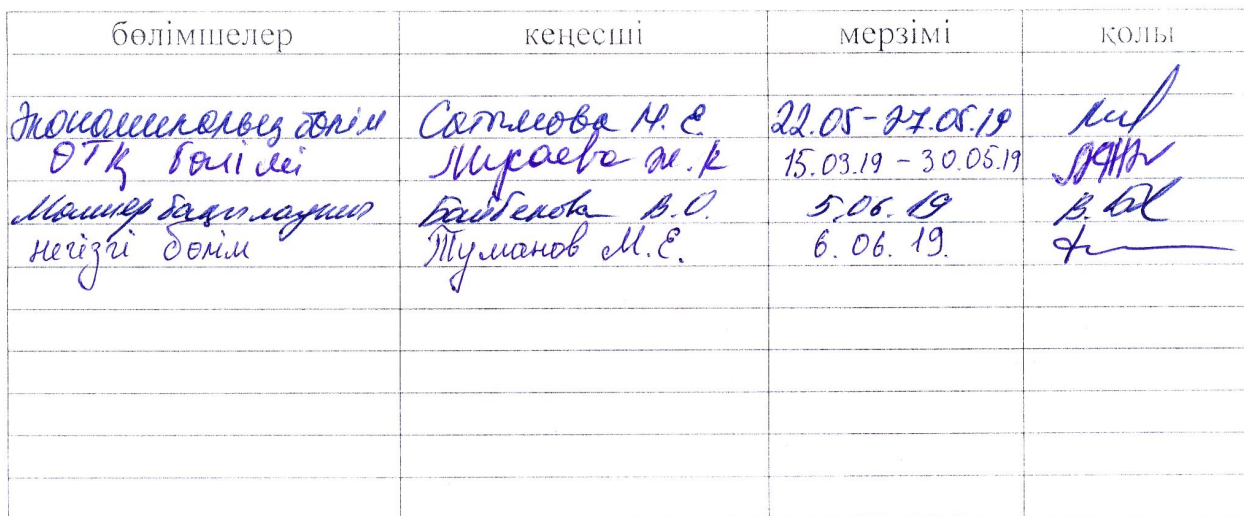 бөлімшелер кеңесші мерзімі қолы
Экономикалық бөлім Сатимова М. Е. 22.05-27.05.19
ӨТҚ бөлімі Мираева Ж.К 15.03.19 - 30.05.19
Байбекова В.О. 5.06.19
негізгі бөлім Туманов М.Е. 6.06.19.